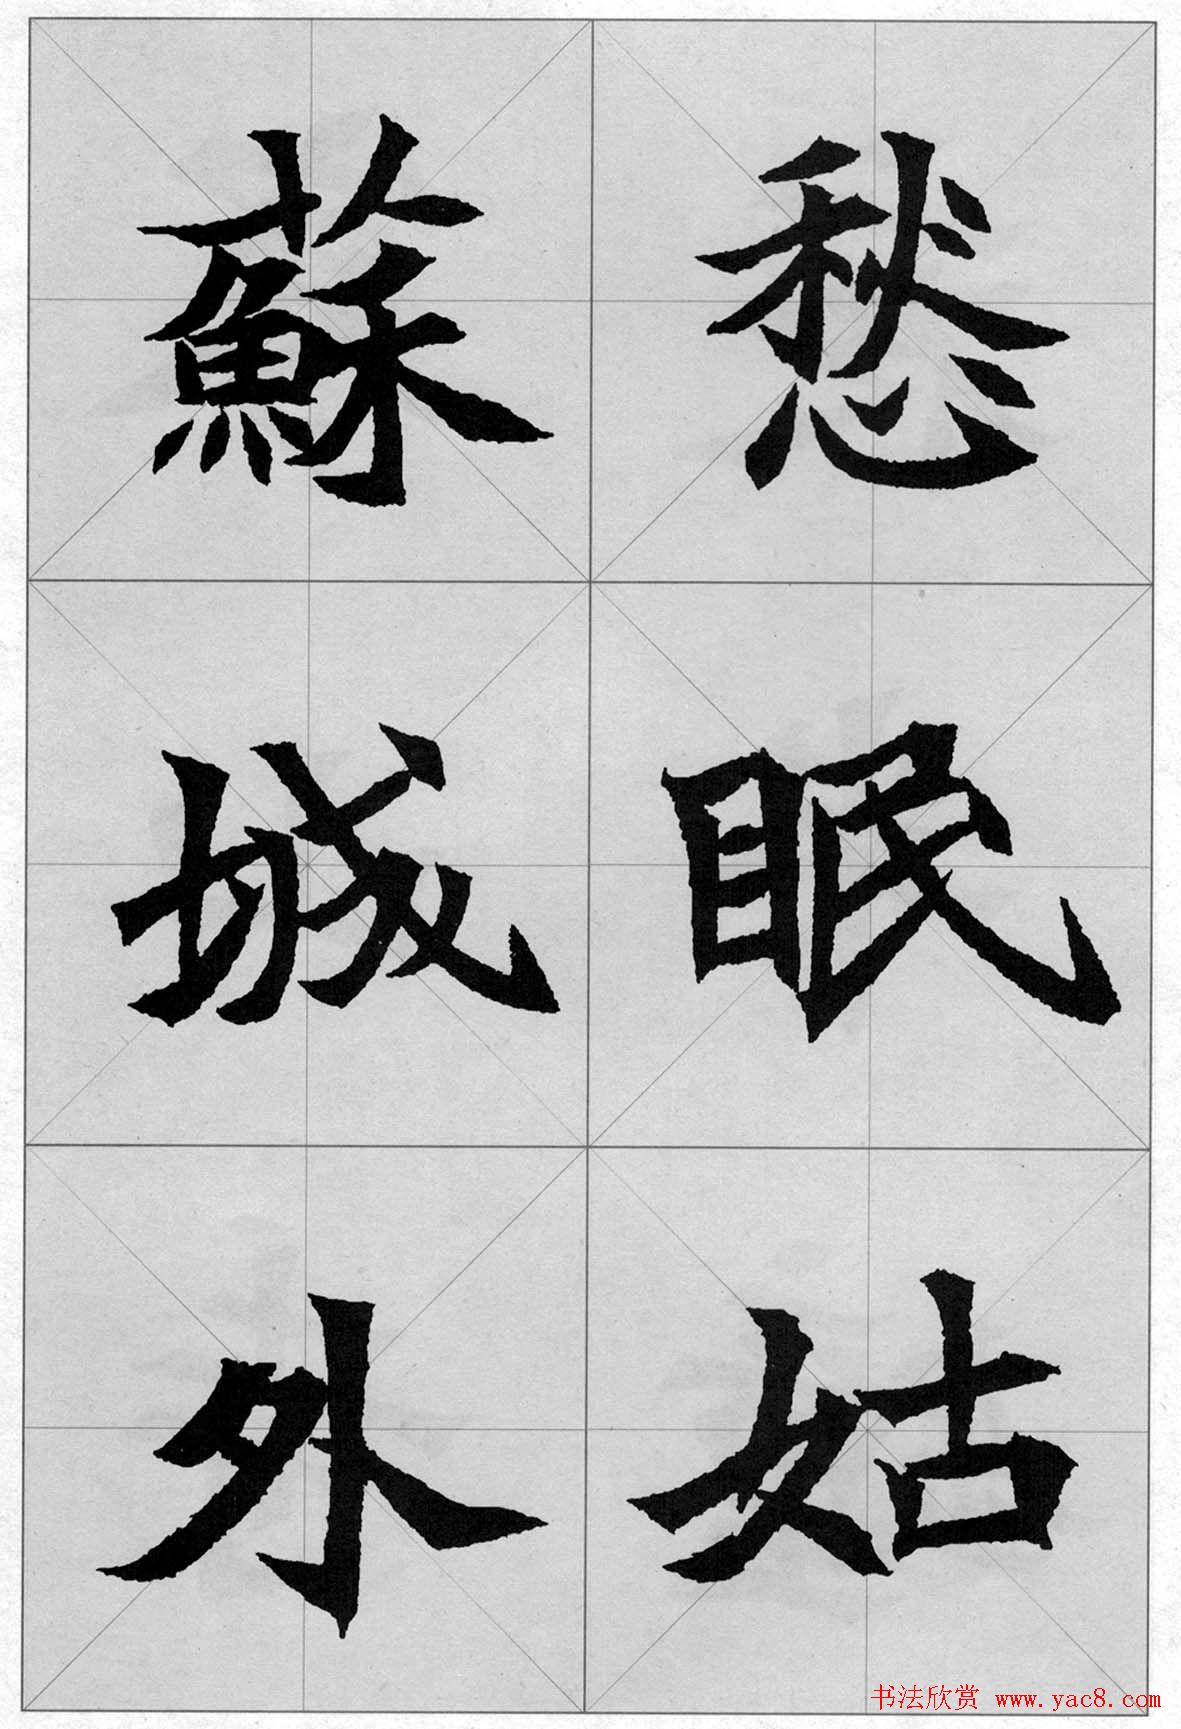 愁眠姑
蘇城外
书法欣赏 www.yac8.com